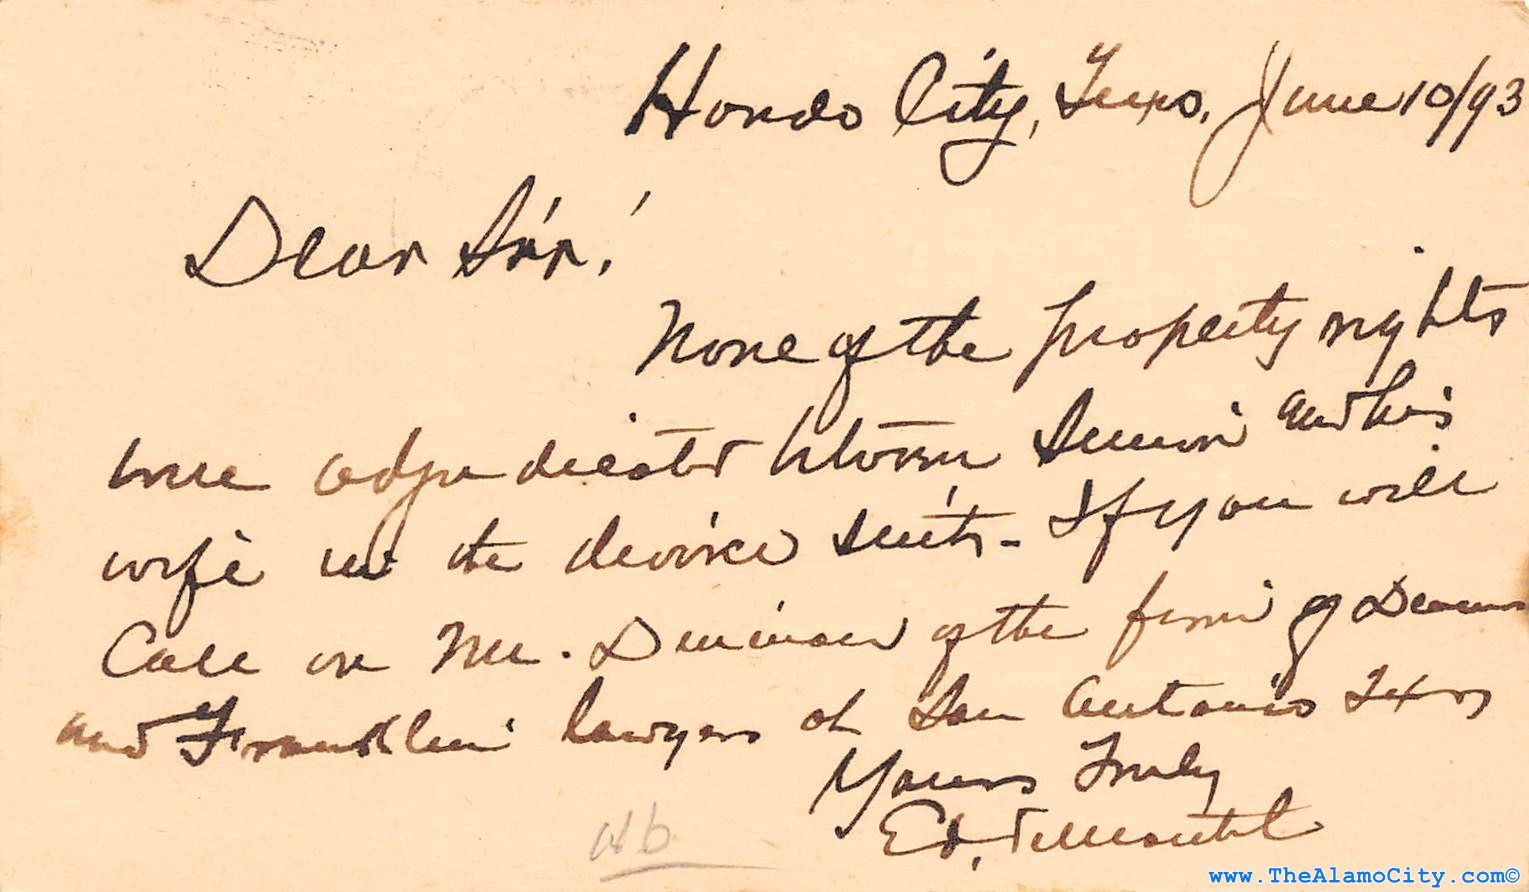 Hondo City, Texas, June 10/93
Dear Sir!
None of the property rights
were adjudicated between and his
wife in the divorce suit. If you will
Call on Mr. of the firm of
and Franklin lawyers of San Antonio Texas
Yours Truly
Ed.
www.TheAlamoCity.com©